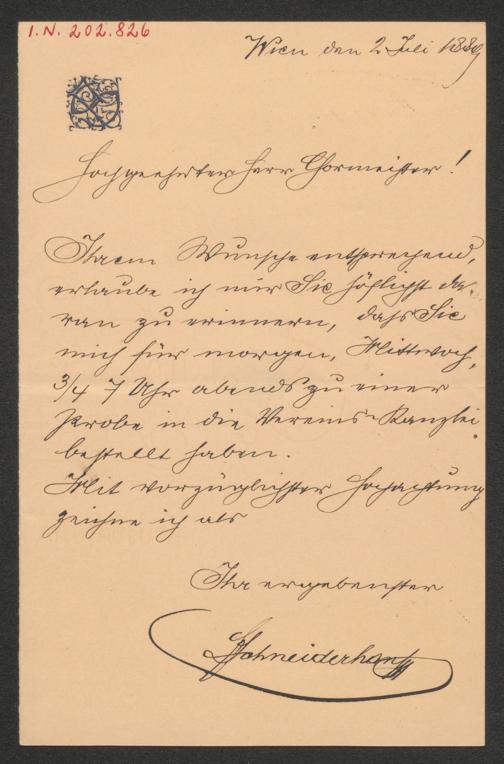 I.N. 202.826
Wien den 2 Juli 1889
Hochgeehrter Herr Chormeister!
Ihrem Wunsche entsprechend,
erlaube ich mir Sie höflichst da-
ran zu erinnern, daſs Sie
mich für morgen, Mittwoch,
3/4 7 Uhr abends zu einer
Probe in die Vereins-Kanzlei
bestellt haben.
Mit vorzüglichster Hochachtung
zeichne ich als
Ihr ergebenster
FSchneiderhan